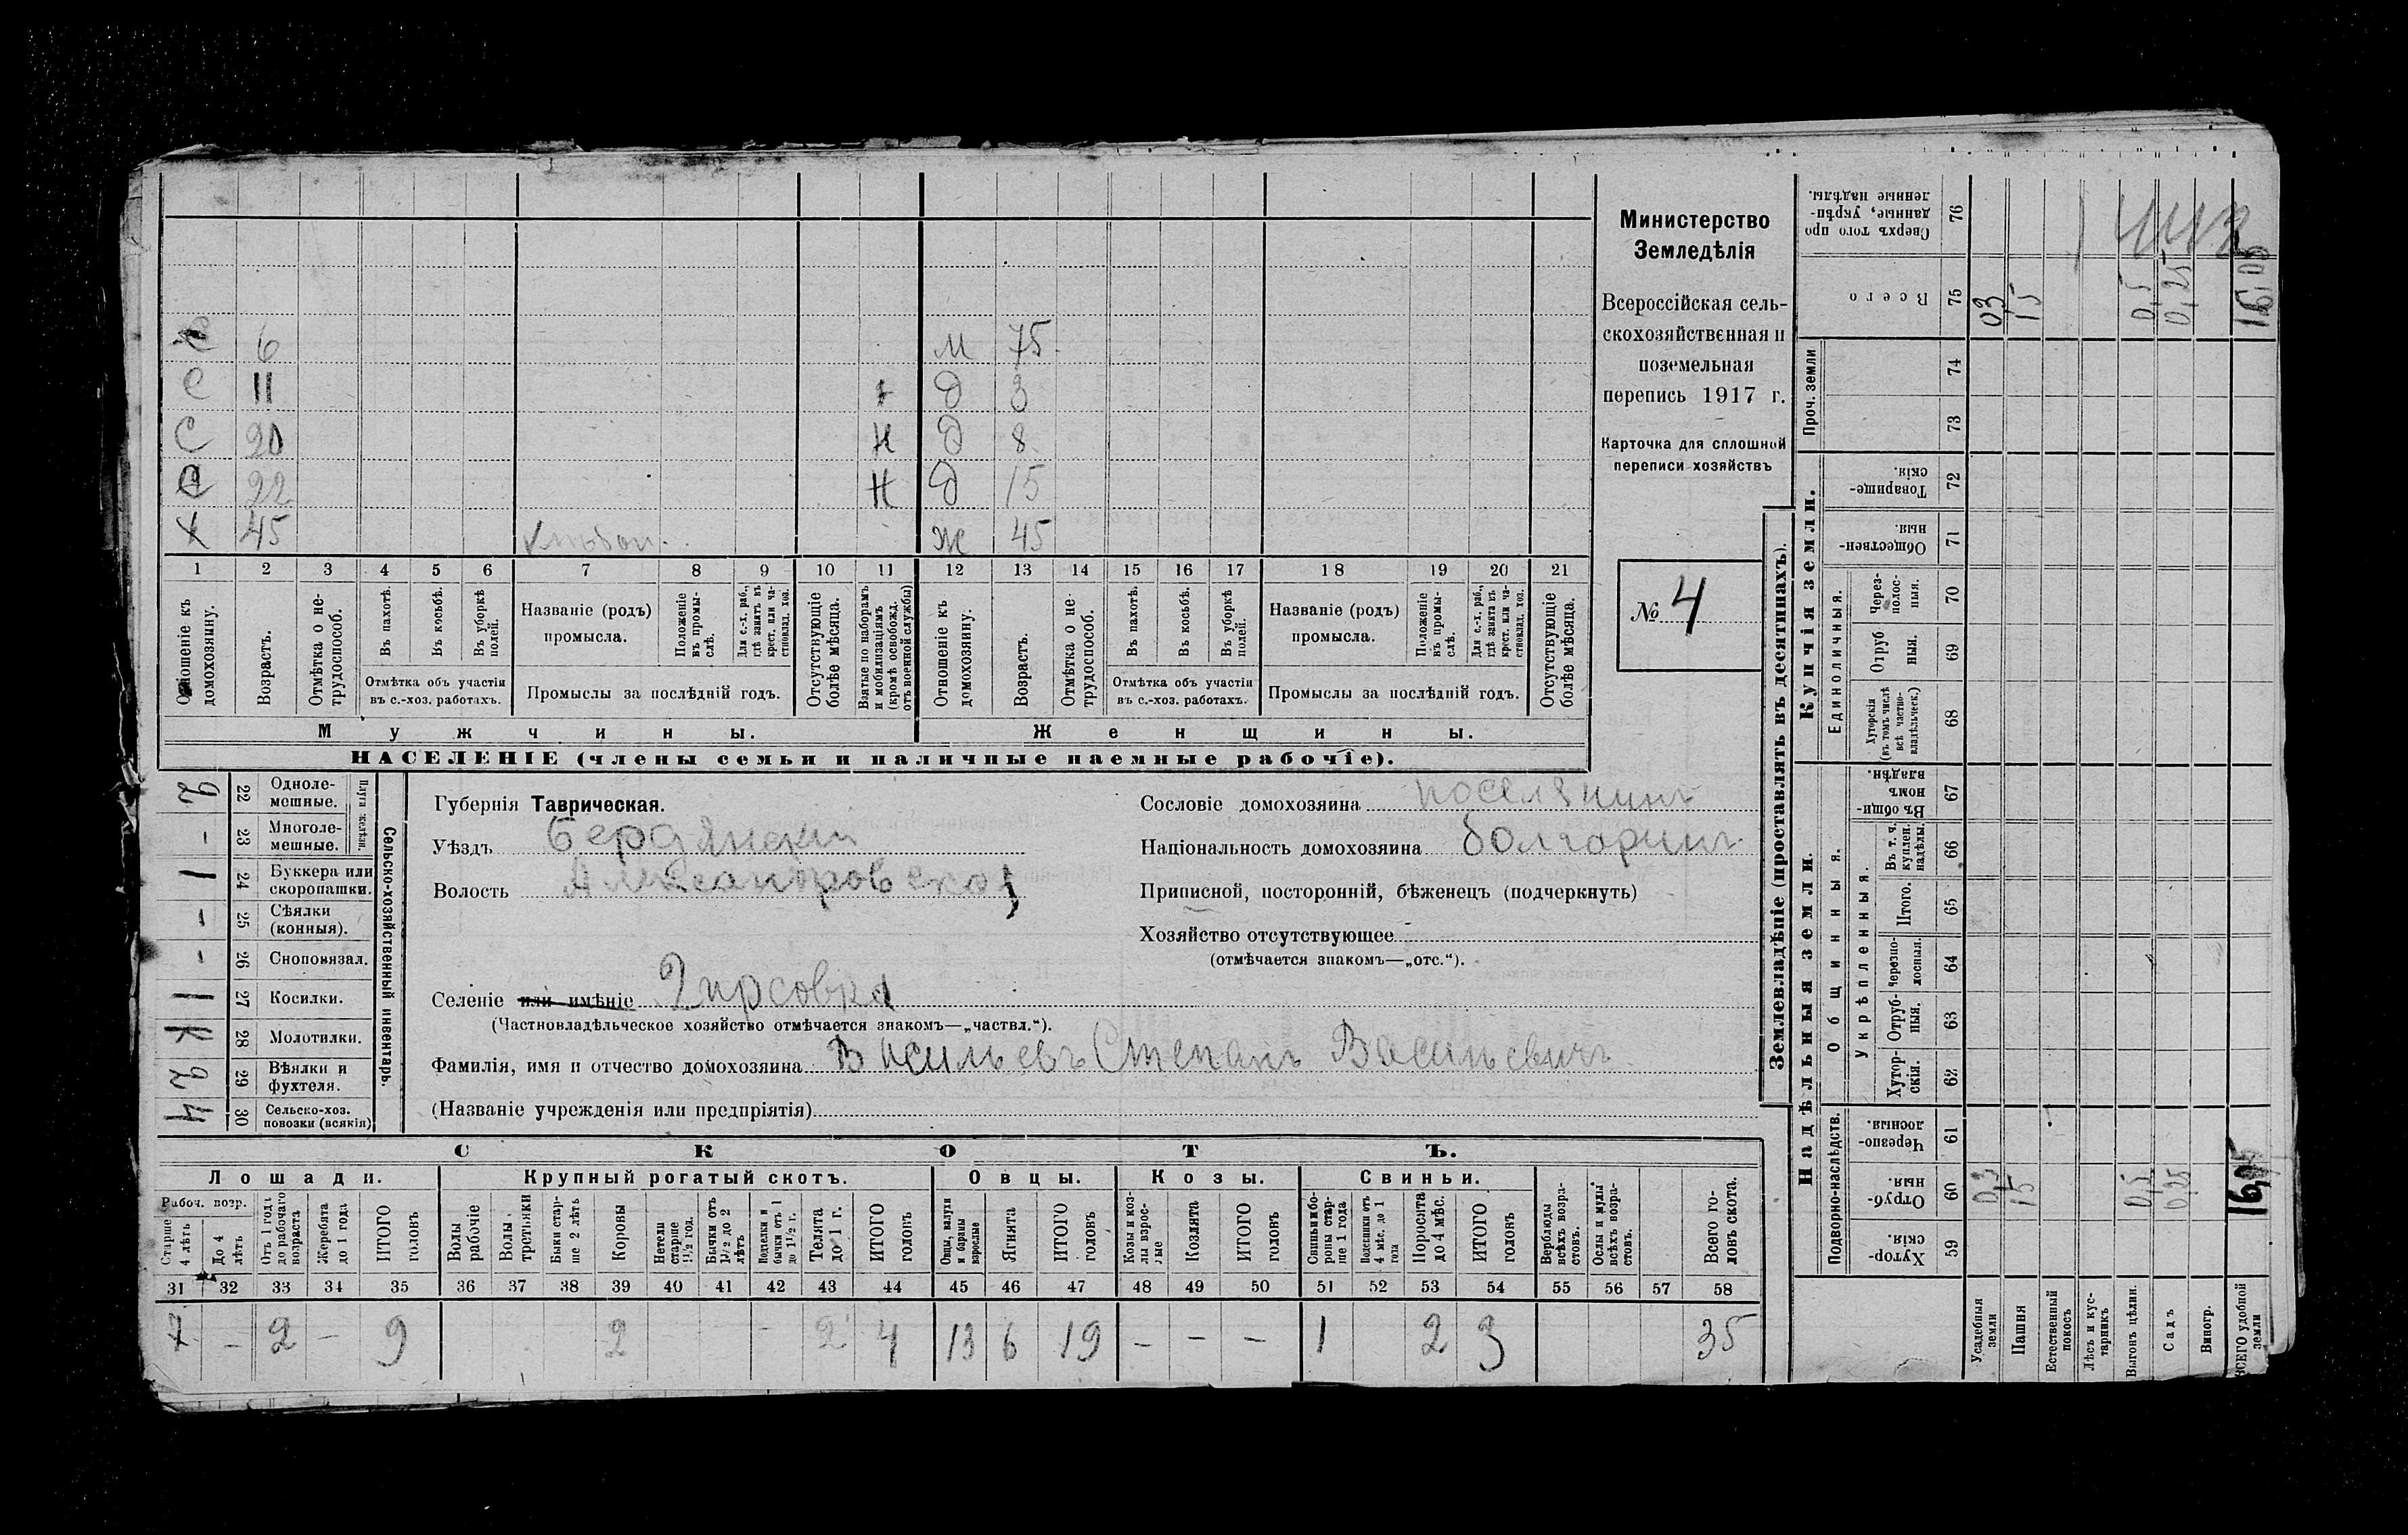 Министерство
Земледѣлія
Всероссійская сель-
скохозяйственная и
поземельная
перепись 1917 г.
Карточка для сплошной
переписи хозяйствъ
№ 4
6 М 75
С 11 Д 3
С 20 Н Д 8
С 22 Н Д 15
Х 45 Ж 45
1 2 3 4 5 6 7 8 9 10 11 12 13 14 15 16 17 18 19 20 21
Отношеніе къ домохозяину.
Возрастъ.
Отмѣтка о не-трудоспособ.
Въ пахотѣ.
Въ косьбѣ.
Въ уборкѣ полей.
Отмѣтка объ участіи въ с.-хоз. работахъ.
Названіе (родъ) промысла.
Положеніе въ промы-слѣ.
Для с.-х. раб., гдѣ занятъ въ крест. или ча-стновлад. хоз.
Промыслы за послѣдній годъ.
Отсутствующіе болѣе мѣсяца.
Взятые по наборамъ и мобилизаціямъ (кромѣ освобожд. отъ военной службы)
Отношеніе къ домохозяину.
Возрастъ.
Отмѣтка о не-трудоспособ.
Въ пахотѣ.
Въ косьбѣ.
Въ уборкѣ полей.
Отмѣтка объ участіи въ с.-хоз. работахъ.
Названіе (родъ) промысла.
Положеніе въ промы-слѣ.
Для с.-х. раб., гдѣ занята въ крест. или ча-стновлад. хоз.
Промыслы за послѣдній годъ.
Отсутствующіе болѣе мѣсяца.
Мужчины. Женщины.
НАСЕЛЕНІЕ (члены семьи и наличные наемные рабочіе).
Сельско-хозяйственный инвентарь.
Плуги желѣзн.
2 22 Одноле-мешные.
- 23 Многоле-мешные.
1 24 Буккера или скоропашки.
- 25 Сѣялки (конныя).
- 26 Сноповязал.
1 27 Косилки.
К 28 Молотилки.
2 29 Вѣялки и фухтеля.
4 30 Сельско-хоз. повозки (всякія)
Губернія Таврическая.
Уѣздъ Бердянскій
Волость Александровской
Селеніе или имѣніе Гирсовка
(Частновладѣльческое хозяйство отмѣчается знакомъ—„частвл.“).
Фамилія, имя и отчество домохозяина Васильевъ Степанъ Васильевичъ
(Названіе учрежденія или предпріятія)
Сословіе домохозяина поселянинъ
Національность домохозяина болгаринъ
Приписной, посторонній, бѣженецъ (подчеркнуть)
Хозяйство отсутствующее
(отмѣчается знакомъ—„отс.“).
СКОТЪ.
Лошади. Крупный рогатый скотъ. Овцы. Козы. Свиньи.
Рабоч. возр.
Старше 4 лѣтъ
До 4 лѣтъ
Отъ 1 года до рабочаго возраста
Жеребята до 1 года
ИТОГО головъ
Волы рабочіе
Волы третьяки
Быки стар-ше 2 лѣтъ
Коровы
Нетели старше 1½ год.
Бычки отъ 1½ до 2 лѣтъ
Подтелки и бычки отъ 1 до 1½ г.
Телята до 1 г.
ИТОГО головъ
Овцы, валухи и бараны взрослые
Ягнята
ИТОГО головъ
Козы и коз-лы взрос-лые
Козлята
ИТОГО головъ
Свиньи и бо-ровы стар-ше 1 года
Подсвинки отъ 4 мѣс. до 1 года
Поросята до 4 мѣс.
ИТОГО головъ
Верблюды всѣхъ возра-стовъ.
Ослы и мулы всѣхъ возра-стовъ.
Всего го-ловъ скота.
31 32 33 34 35 36 37 38 39 40 41 42 43 44 45 46 47 48 49 50 51 52 53 54 55 56 57 58
7 - 2 - 9 2 - 2 4 13 6 19 - - - 1 2 3 35
Землевладѣніе (проставлять въ десятинахъ).
Надѣльныя земли. Купчія земли.
Подворно-наслѣдств.
Общинныя.
Укрѣпленныя.
Единоличныя.
Проч. земли
Хутор-скія. 59
Отруб-ныя. 60
Черезпо-лосныя. 61
Хутор-скія. 62
Отруб-ныя. 63
Черезпо-лосныя. 64
Итого. 65
Въ т. ч. куплен. надѣлы. 66
Въ общи-номъ владѣн. 67
Хуторскія (въ томъ числѣ всѣ частно-владѣльческ.) 68
Отруб ныя. 69
Через-полос-ныя. 70
Обществен-ныя. 71
Товарище-скія. 72
73
74
Всего 75
Сверхъ того про данные, укрѣп-ленные надѣлы. 76
Усадебныя земли 0,3 03
Пашня 15 15
Естественный покосъ
Лѣсъ и кус-тарникъ
Выгонъ цѣлин. 0,5 0,5
Садъ 0,25 0,25
Виногр.
ВСЕГО удобной земли 16,05 16,05